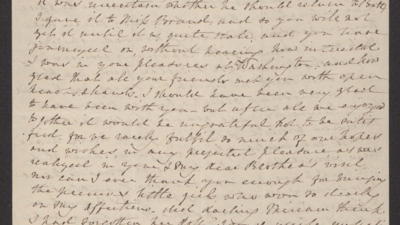 it was uncertain whether he should return to
I gave it to Miss and so you will not
get it until it is quite stale, and you have
journeyed on without hearing how interested
I was in your pleasures at Washington, and how
glad that all your friends met you with open
hearts & hands. I should have been very glad
to have been with you but after all we enjoyed
together it would be ungrateful not to be
for we rarely fulfil so much of our hopes
and wishes in any projected pleasure as was
realized in your & my dear Bertha's visit
nor can I ever thank you enough for bringing
the precious little girl who won so dearly
on my affections. did darling think
I had forgotten her